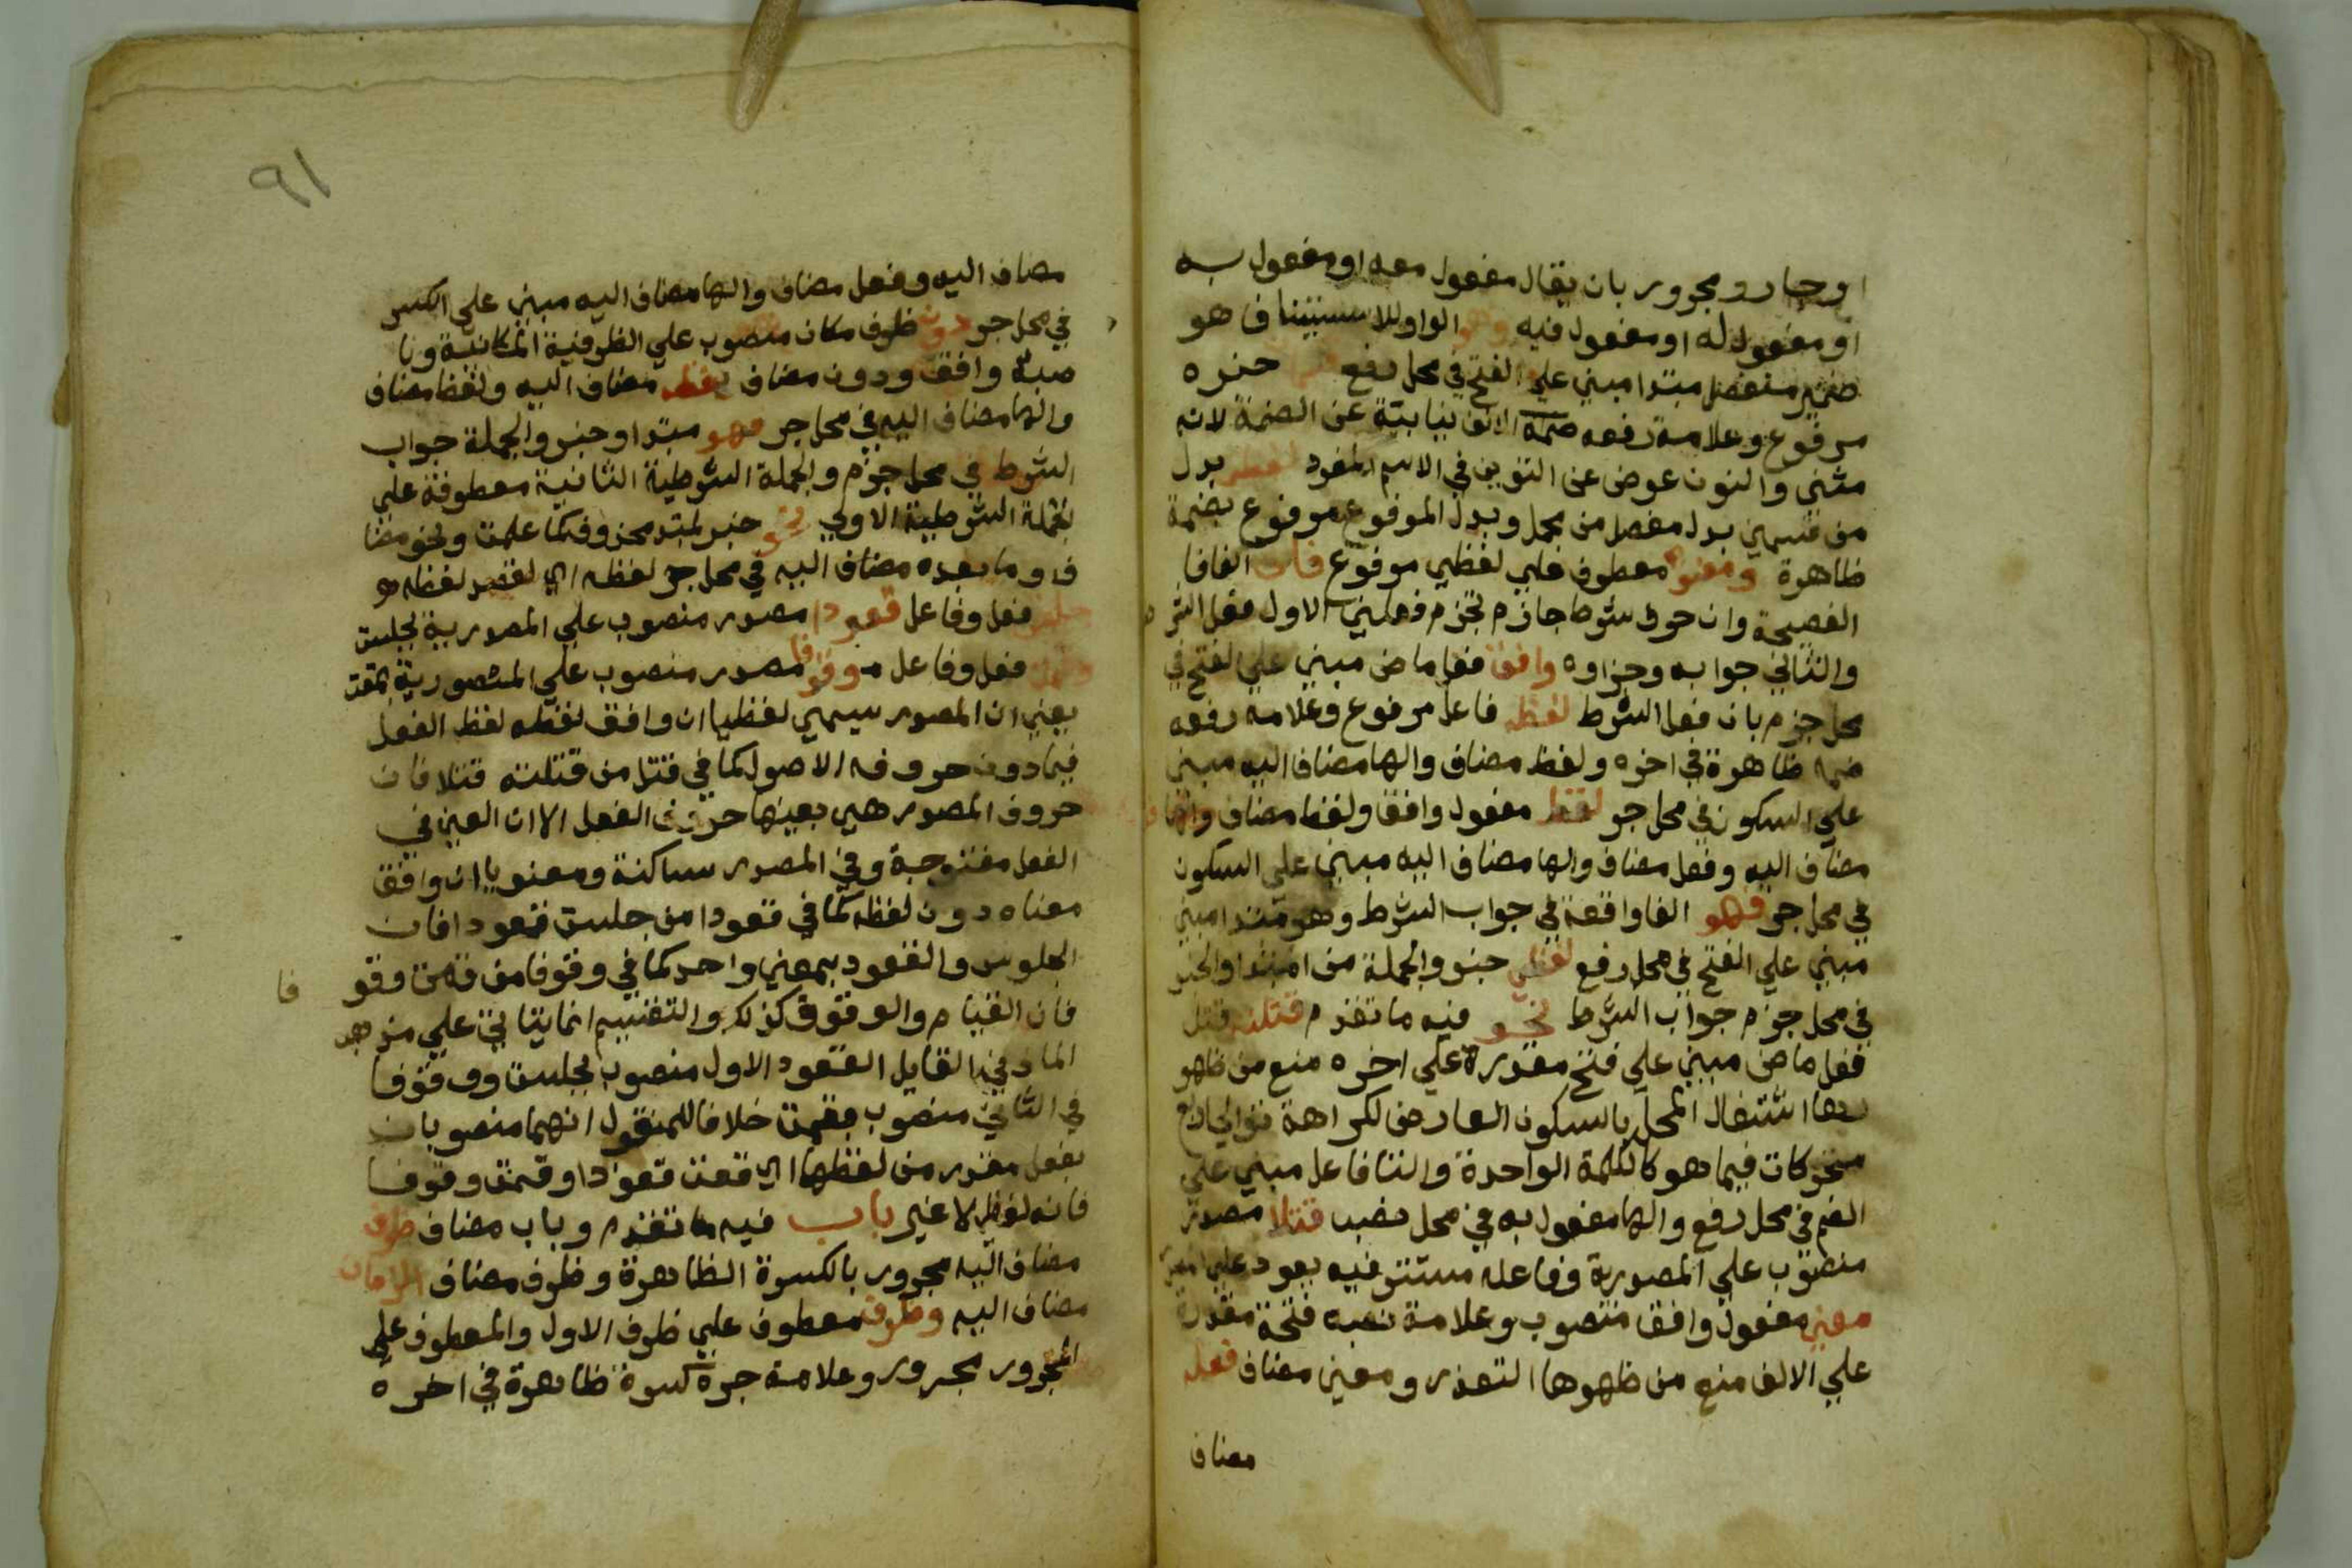 او جار ومجرور بان يقال مفعول معه او مفعول به
او مفعول له او مفعول فيه وهو الواو للاستيناف هو
ضمير منفصل مبتدا مبني علي الفتح في محل رفع خبره
مرفوع وعلامة رفعه الالف نيابية عن الضمة لانه
مثنى والنون عوض عن التنوين في الاسم المفرد لفظي بدل
من قسمين بدل مفصل من مجمل وبدل المرفوع مرفوع بضمة
ظاهرة ومعنوي معطوف علي لفظي مرفوع فان الفافا
الفصيحة وان حرف شرط جازم تجزم فعلين الاول فعل الشر
والثاني جوابه وجزاوه وافق فعل ماض مبني علي الفتح في
محل جزم بان فعل الشرط لفظه فاعل مرفوع وعلامه رفعه
ضمه ظاهرة في اخره ولفظ مضاف والها مضاف اليه مبني
علي السكون في محل جر لفظ مفعول وافق ولفظ مضاف والها
مضاف اليه وفعل مضاف والها مضاف اليه مبني على السكون
في محل جر فهو الفا واقعة في جواب الشرط وهو مبتدا مبني
مبني علي الفتح في محل رفع لفظي خبر والجملة من المبتدا والخبر
في محل جزم جواب الشرط نحو فيه ما تقدم قتلته قتل
فعل ماض مبني على فتح مقدرة علي اخره منع من ظهو
رها اشتغال المحل بالسكون العارض لكراهة توالي اربع
متحركات فيما هو كالكلمة الواحدة والتا فاعل مبني علي
الضم في محل رفع والها مفعول به في محل نصب قتلا مصدر
منصوب علي المصدرية وفاعله مستتر فيه يعود علي
معني مفعول وافق منصوب وعلامة نصبه فتحة مقدرة
علي الالف منع من ظهوها التعذر ومعني مضاف فعله
مضاف
٩١
مضاف اليه وفعل مضاف والها مضاف اليه مبني على الكسر
في محل جر دون ظرف مكان منصوب علي الظرفية المكانية ونا
صبه وافق ودون مضاف لفظه مضاف اليه ولفظ مضاف
والها مضاف اليه في محل جر فهو مبتدا وخبر والجملة جواب
الشرط في محل جزم والجملة الشرطية الثانية معطوفة علي
الجملة الشرطية الاولي نحو خبر لمبتد محذوف كما علمت ونحو مضا
ف وما بعده مضاف اليه في محل جر لفظه اي
جلس فعل وفاعل قعودا مصدر منصوب علي المصدرية بجلست
وقمت فعل وفاعل وقوفا مصدر منصوب علي المصدرية بقمت
يعني ان المصدر سيمي لفظيا ان وافق لفظه لفظ الفعل
فيما دون حروفه الاصول كما في قتل من قتلته قتلا فان
حروف المصدر هي بعينها حروف الفعل الا ان العين في
الفعل مفتوحة وفي المصدر ساكنة ومعنويا ان وافق
معناه دون لفظه كما في قعودا من جلست قعودا فان
الجلوس والقعود بمعني واحد كما في وقوفا من قمت وقو فا
فان القيام والوقوف كذلك والتقسيم انما يتاتي علي مذهب
المازني القايل القعود الاول منصوب بجلست ووقوفا
في الثاني منصوب بقمت خلافا للمنقول انهما منصوبان
بفعل مقدر من لفظهما اي قعدت قعودا وقمت وقوفا
فانه لفظي لا غير باب فيه ما تقدم وباب مضاف ظرف
مضاف اليه مجرور بالكسرة الظاهرة وظرف مضاف الزمان
مضاف اليه وظرف معطوف علي ظرف الاول والمعطوف علي
المجرور مجرور وعلامة جره كسرة ظاهرة في اخره